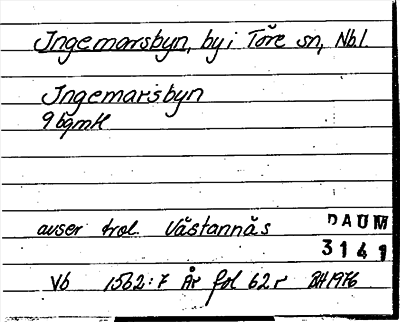 Ingemarsbyn, by i Töre sn, Nb.l.
Ingemarsbyn
avser trol. Västannäs
DAUM
3141
Vb 1562:7 År fol 62 r BH 1976